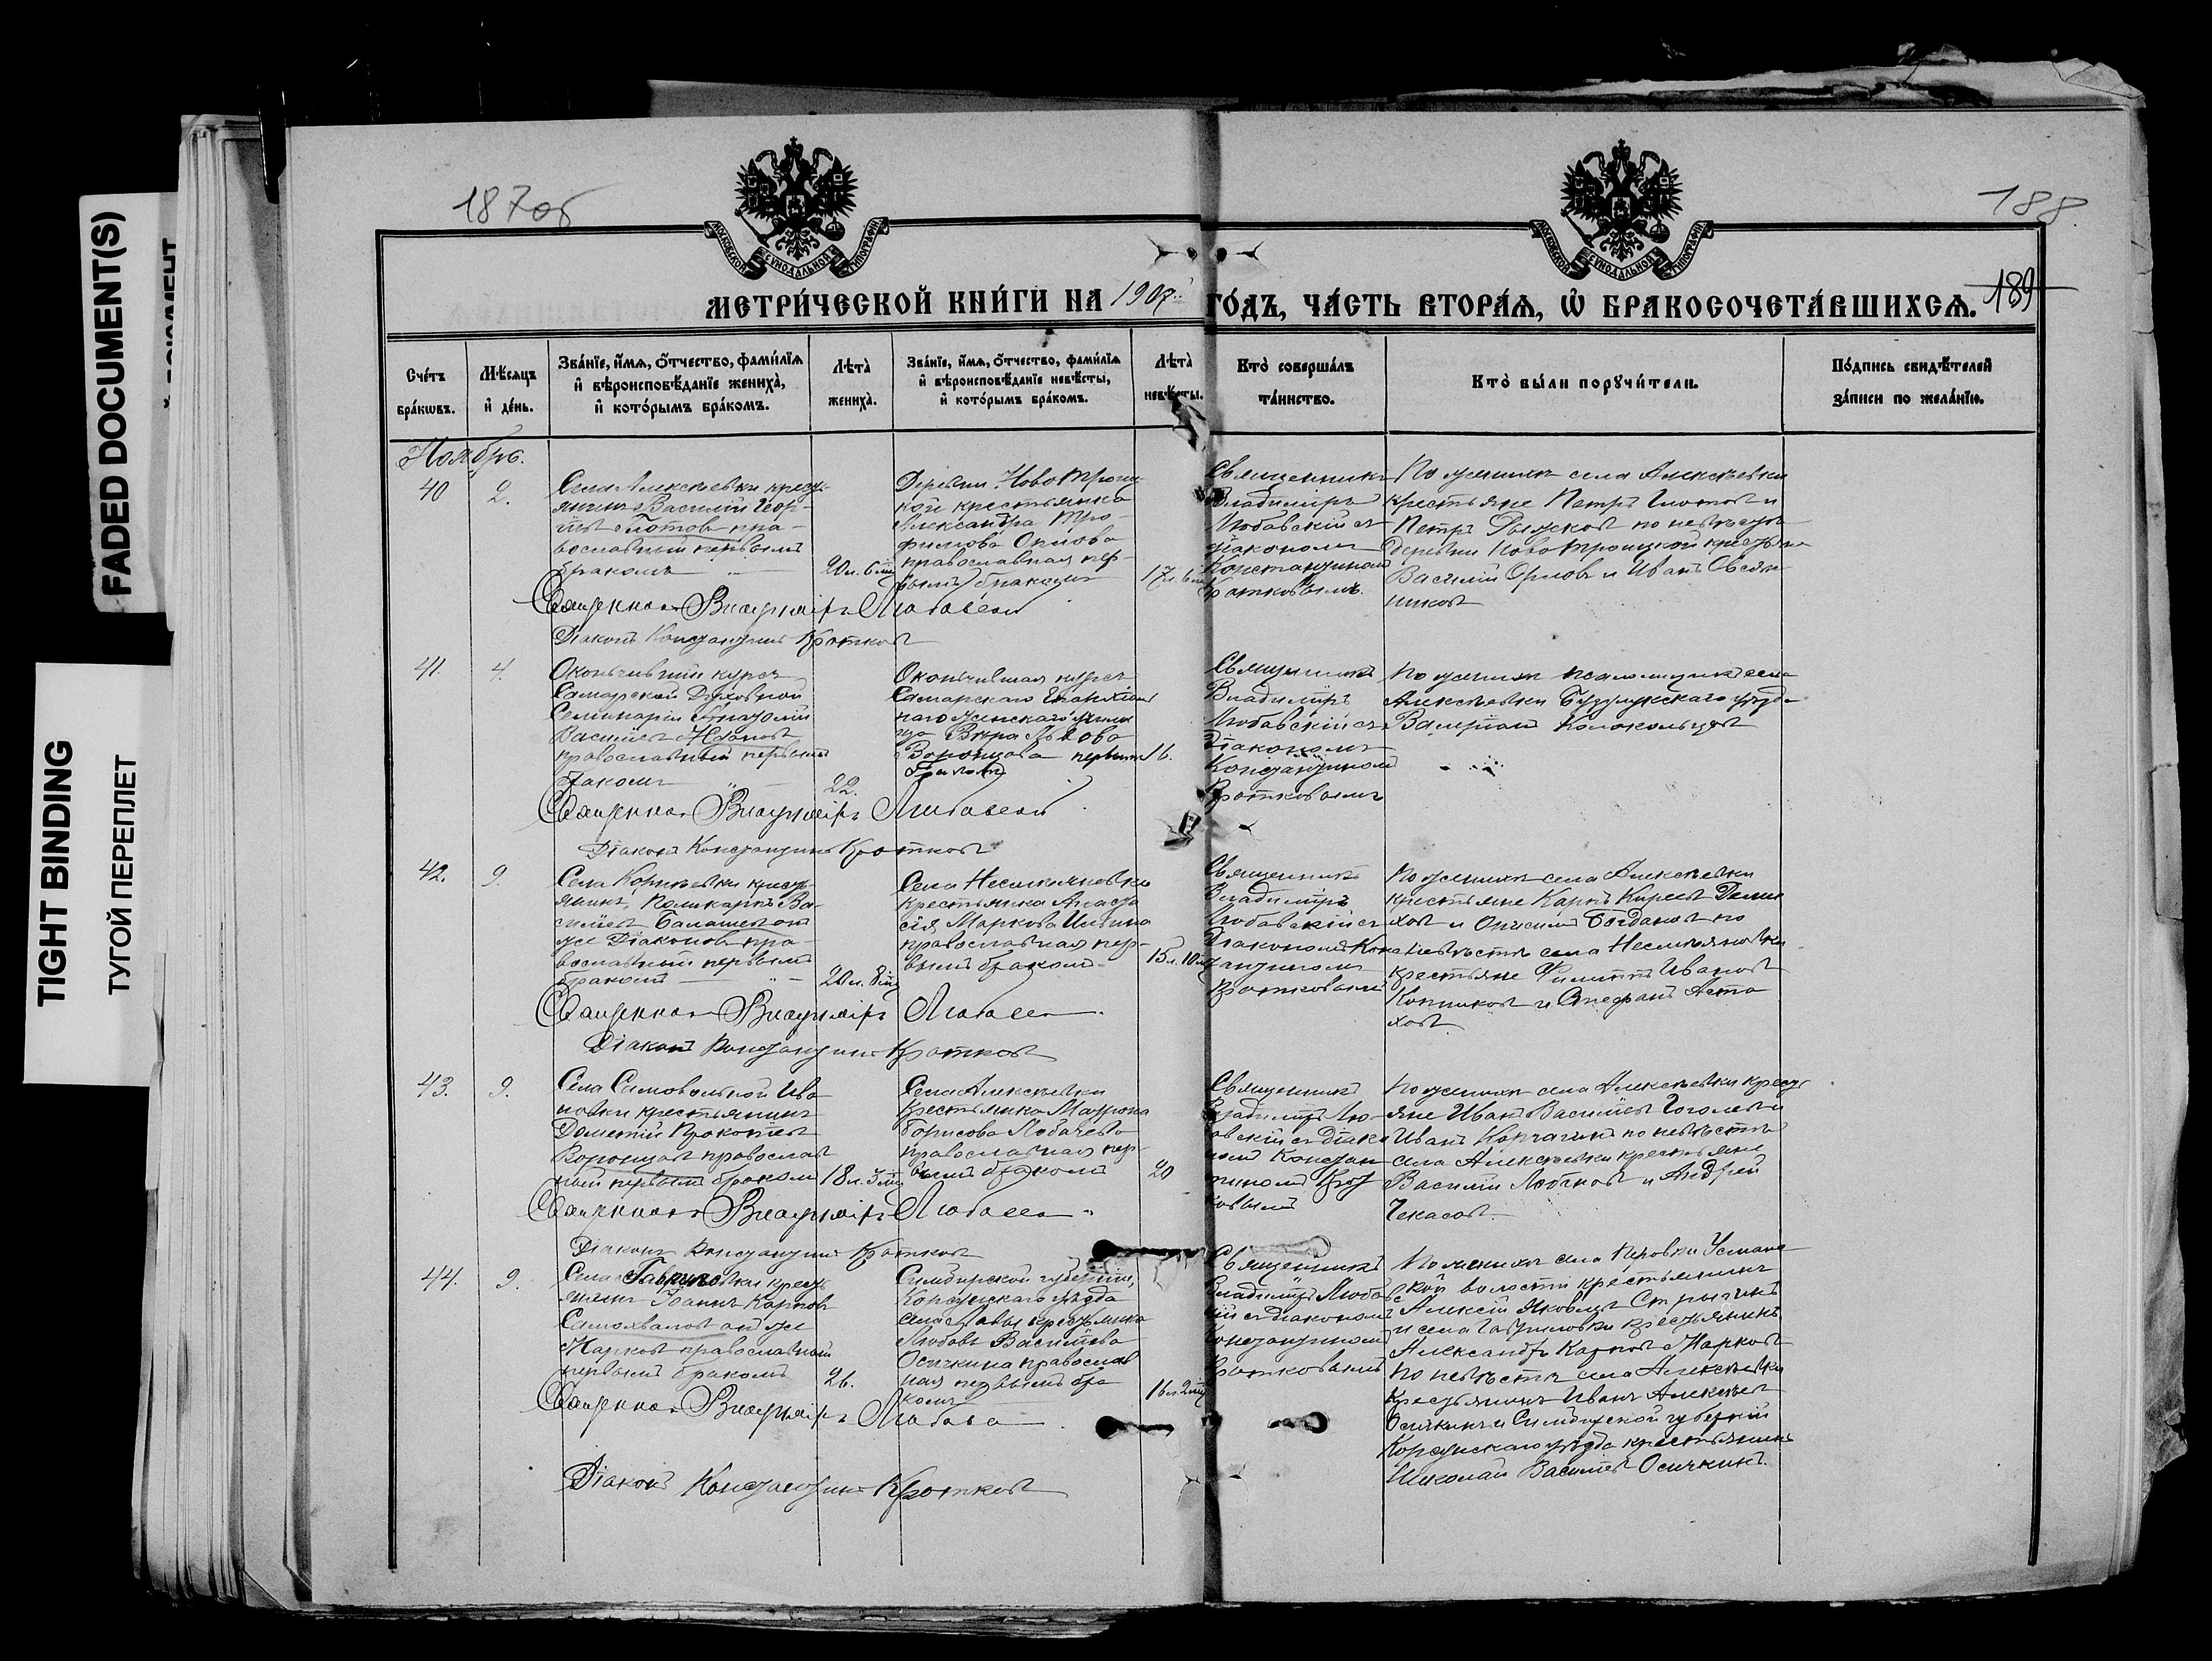 FADED DOCUMENT(S)
TIGHT BINDING
ТУГОЙ ПЕРЕПЛЕТ
187об
188
МОСКОВСКОЙ СѴНОДАЛЬНОЙ ТИПОГРАФІИ
МОСКОВСКОЙ СѴНОДАЛЬНОЙ ТИПОГРАФІИ
МЕТРИ́ЧЕСКОЙ КНИ́ГИ НА 1907 ГО́ДЪ, ЧА́СТЬ ВТОРА́Ѧ, Ѡ҆ БРАКОСОЧЕТА́ВШИХСѦ.
189
Сче́тъ бра́кѡвъ.
Мѣ́сяцъ и҆ де́нь.
Зва́нїе, и҆́мѧ, ѻ҆́тчество, фами́лїѧ и҆ вѣроисповѣ́данїе жениха̀, и҆ кото́рымъ бра́комъ.
Лѣта̀ жениха̀.
Зва́нїе, и҆́мѧ, ѻ҆́тчество, фами́лїѧ и҆ вѣроисповѣ́данїе невѣ́сты, и҆ кото́рымъ бра́комъ.
Лѣта̀ невѣ́сты.
Кто̀ соверша́лъ та́инство.
Кто̀ бы́ли порꙋчи́тели.
По́дпись свидѣ́телей за́писи по жела́нїю.
Ноябрь.
40
2.
Села Алексѣевки кресть-
янинъ Василій Геор-
гіевъ Глотовъ пра-
вославный первымъ
бракомъ
20 л. 6 мц
Деревни Ново Троиц-
кой крестьянка
Александра Тро-
фимова Орлова
православная пер-
вымъ бракомъ
17 л. 6
Священникъ
Владиміръ
Любавскій съ
діакономъ
Константиномъ
Кротковымъ.
По женихѣ села Алексѣевки
крестьяне Петръ Глотовъ и
Петръ Рыжковъ по невѣстѣ
деревни Ново Троицкой крестьяне
Василій Орловъ и Иванъ Овсян-
никовъ
Священникъ Владиміръ Любавскій
Діаконъ Константинъ Кротковъ
41.
4.
Окончившій курсъ
Самарской Духовной
Семинаріи Анатолій
Васильевъ Ждановъ
православный первымъ
бракомъ
22.
Окончившая курсъ
Самарскаго Епархіаль
наго женскаго учили
ща Вѣра Львова
Воронцова первымъ
бракомъ
16.
Священникъ
Владиміръ
Любавскій съ
Діакономъ
Константиномъ
Кротковымъ
По женихѣ псаломщикъ села
Алексѣевки Бузулукскаго уѣзда
Валеріанъ Колокольцевъ
Священникъ Владиміръ Любавскій
Діаконъ Константинъ Кротковъ
42.
9.
Села Корнѣевки кресть-
янинъ Поликарпъ Ва-
сильевъ Балашевъ онъ
же Діаконовъ пра-
вославный первымъ
бракомъ
20 л. 8 мц
Села Несмѣяновки
крестьянка Анаста
сія Маркова Ильина
православная пер-
вымъ бракомъ
15 л. 10 м
Священникъ
Владиміръ
Любавскій съ
Діакономъ Конс
тантиномъ
Кротковымъ
По женихѣ села Алексѣевки
крестьяне Карпъ Киреевъ
и Онисимъ Богдановъ по
невѣстѣ села Несмѣяновки
крестьяне Филиппъ Ивановъ
и Стефанъ Аста
ховъ
Священникъ Владиміръ Любавскій
Діаконъ Константинъ Кротковъ
43.
9.
Села Самовольной Ива
новки крестьянинъ
Дометій Прокопіевъ
Воронцовъ православ
ный первымъ бракомъ
18 л. 3 мц
Села Алексѣевки
крестьянка Матрона
Борисова Лобачева
православная пер-
вымъ бракомъ
20
Священникъ
Владиміръ Лю-
бавскій съ Діако
номъ Констан
тиномъ Крот
ковымъ
По женихѣ села Алексѣевки кресть
яне Иванъ Васильевъ Гоголевъ и
Иванъ Корчагинъ по невѣстѣ
села Алексѣевки крестьяне
Василій и Андрей
Чекасовъ.
Священникъ Владиміръ Любавскій
Діаконъ Константинъ Кротковъ
44.
9.
Села Гавриловки кресть
янинъ Іоаннъ Карповъ
Самохваловъ онъ же
Марковъ православный
первымъ бракомъ
26.
Симбирской губерніи,
Корсунскаго уѣзда
села крестьянка
Любовь Васильева
Осичкина православ
ная первымъ бра
комъ
16 л. 2 мц
Священникъ
Владиміръ Любавс
кій съ діакономъ
Константиномъ
Кротковымъ
По женихѣ села Перовки Усманс
кой волости крестьянинъ
Алексій Яковлевъ Стрыгинъ
и села Гавриловки крестьянинъ
Александръ Карповъ Марковъ
по невѣстѣ села Алексѣевки
крестьянинъ Иванъ Алексѣевъ
Осичкинъ и Симбирской губерніи
Корсунскаго уѣзда крестьянинъ
Николай Васильевъ Осичкинъ.
Священникъ Владиміръ Любавскій
Діаконъ Константинъ Кротковъ